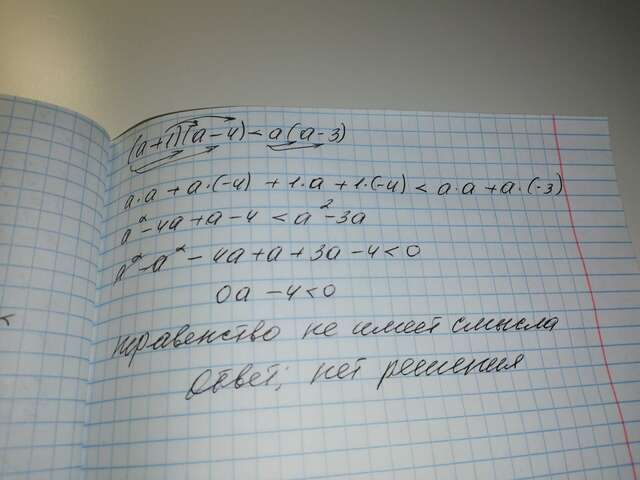 (a+1)(a-4)<a(a-3)
a·a+a·(-4)+1·a+1·(-4)<a·a+a·(-3)
a²-4a+a-4<a²-3a
a²-a²-4a+a+3a-4<0
0a-4<0
неравенство не имеет смысла
Ответ: нет решения